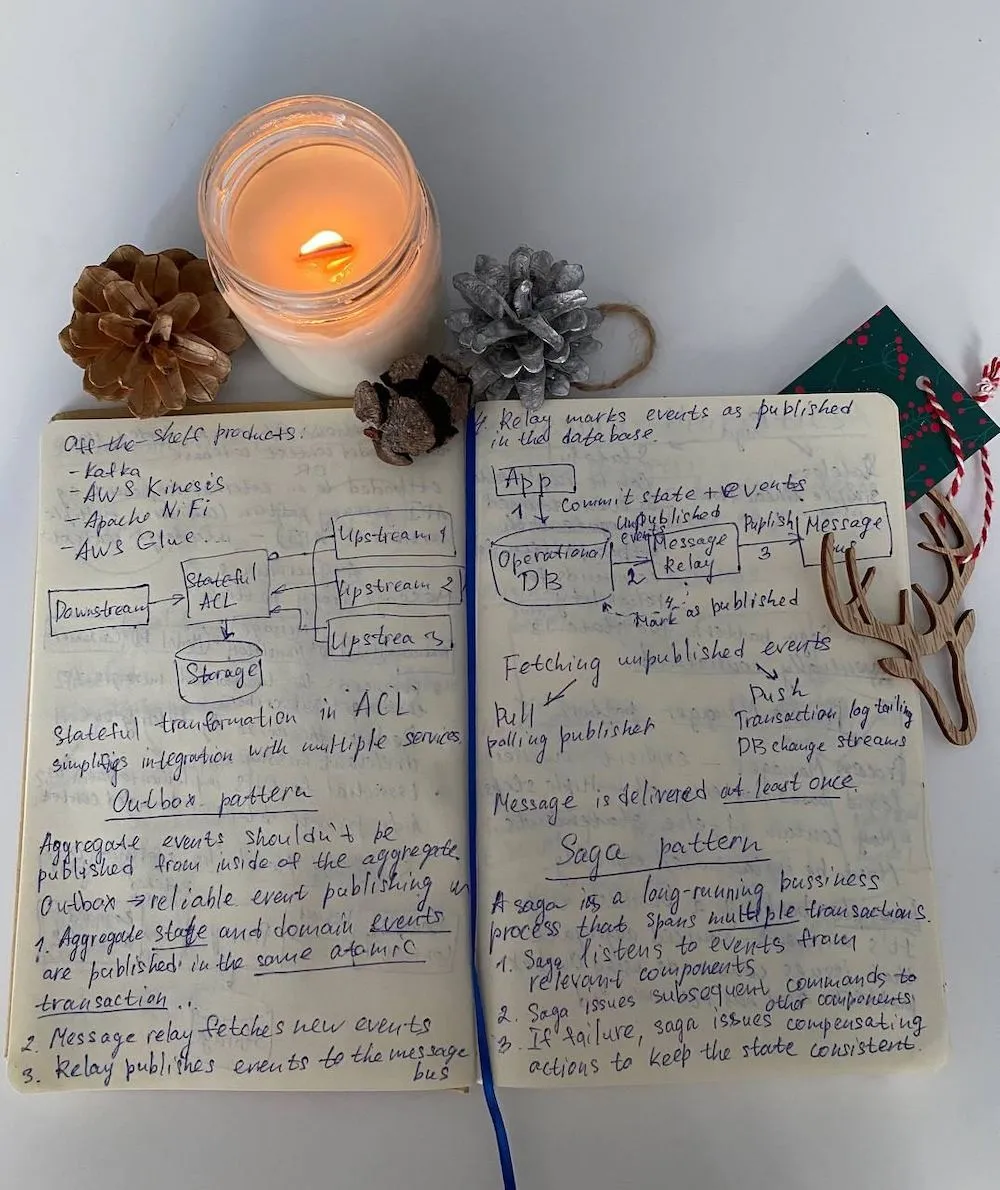 Off-the-shelf products:
- Kafka
- AWS Kinesis
- Apache NiFi
- AWS Glue.
Upstream 1
Stateful
ACL
Downstream
Upstream 2
Upstrea 3
Storage
Stateful tranformation in "ACL"
simplifies integration with multiple services.
Outbox pattern
Aggregate events shouldn't be
published from inside of the aggregate.
Outbox → reliable event publishing
1. Aggregate state and domain events
are published in the same atomic
transaction...
2. Message relay fetches new events
3. Relay publishes events to the message
bus
4. Relay marks events as published
in the database.
App
1 Commit state + events
Operational
DB
Unpublished
events
2
Message
Relay
Publish
3
Message
4
Mark as published
Fetching unpublished events
Pull
polling publisher
Push
Transaction log tailing
DB change streams
Message is delivered at least once.
Saga pattern
A saga is a long-running bussiness
process that spans multiple transactions.
1. Saga listens to events from
relevant components
2. Saga issues subsequent commands to
other components
3. If failure, saga issues compensating
actions to keep the state consistent.